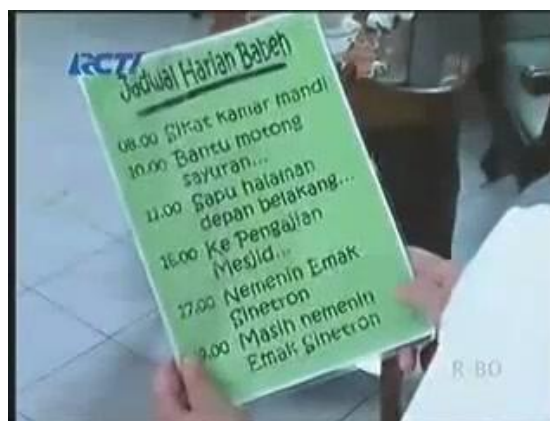 RCTI
Jadwal Harian Babeh
08.00 Sikat kamar mandi
10.00 Bantu motong
sayuran...
11.00 Sapu halaman
depan belakang...
16.00 Ke Pengajian
Mesjid...
17.00 Nemenin Emak
Sinetron
Masih nemenin
Emak Sinetron
R-BO